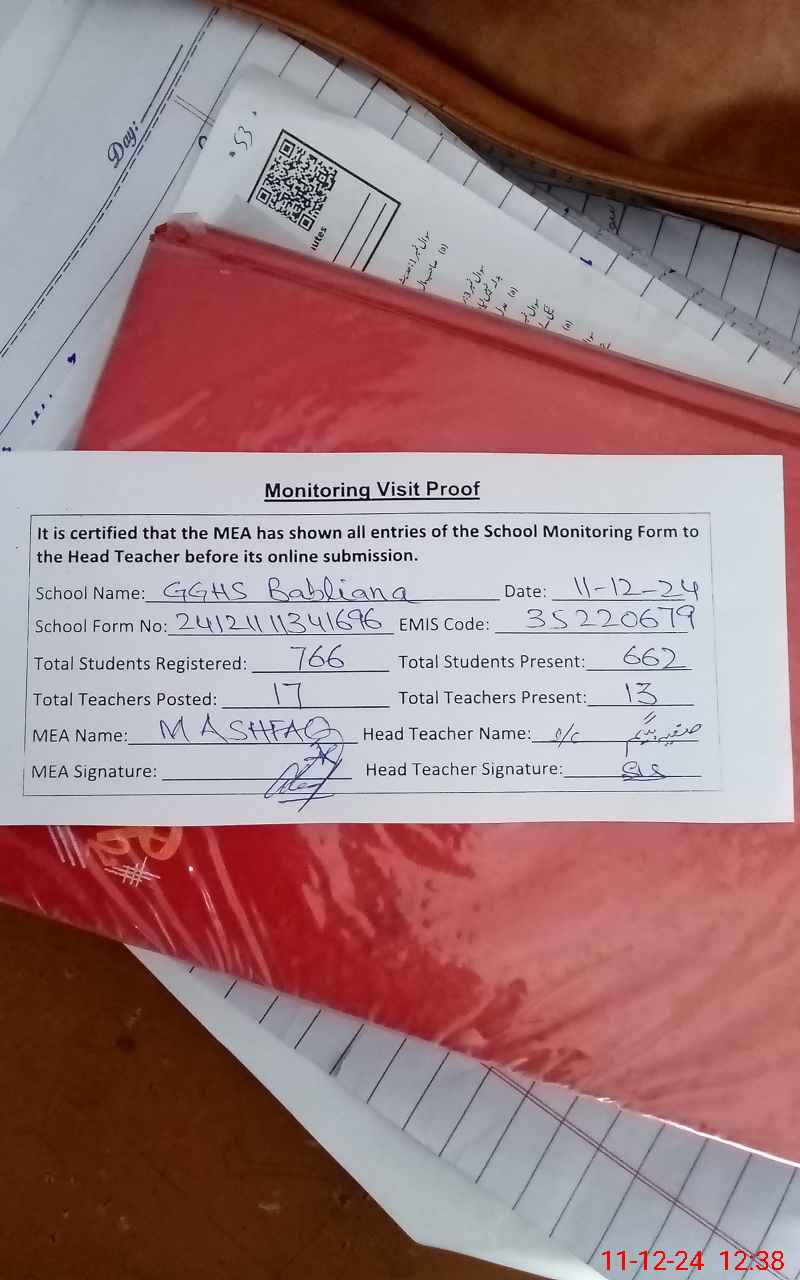 Day:
53
utes
Monitoring Visit Proof
It is certified that the MEA has shown all entries of the School Monitoring Form to
the Head Teacher before its online submission.
School Name: GGHS Babliana Date: 11-12-24
School Form No: 24121111341696 EMIS Code: 35220679
Total Students Registered: 766 Total Students Present: 662
Total Teachers Posted: 17 Total Teachers Present: 13
MEA Name: MASHFAQ Head Teacher Name: o/c صفیہ بیگم
MEA Signature: Head Teacher Signature:
11-12-24 12:38